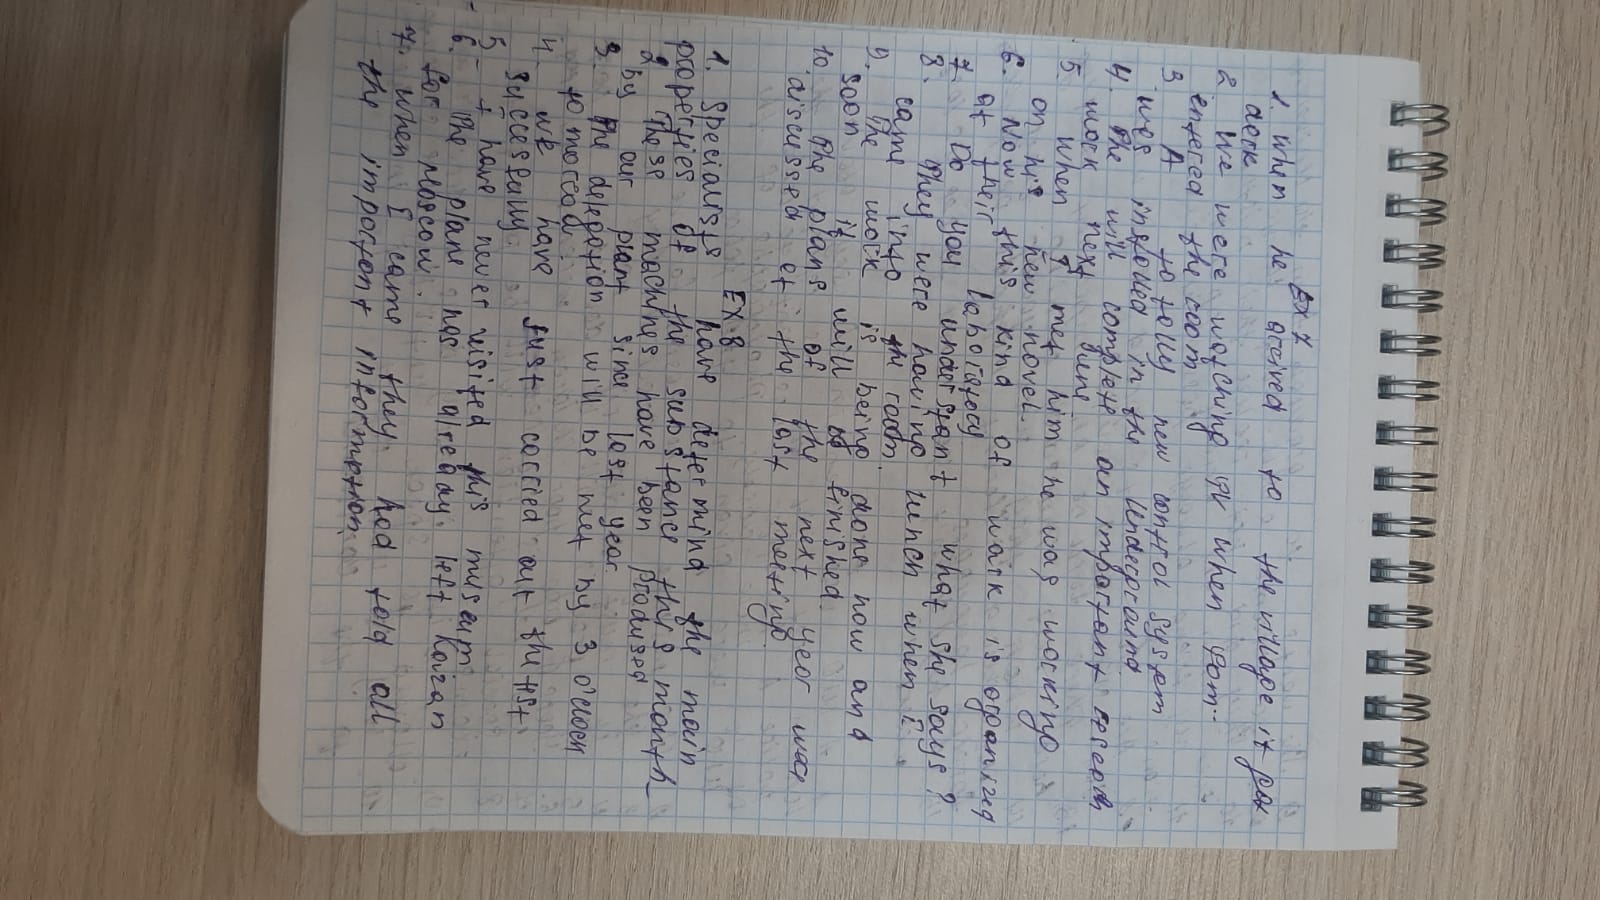 Ex 7
1. when he arrived to the village it gox
dark
2. We were watching TV when Yom..
entered the room
3. A totally new control system
was installed in the Undergrannd
4. The will complete an important reserch
work next June
5. When I met him he was working
on his new novel.
6. Now this kind of work is organized
at their laborotory
7. Do you understant what she says?
8. They were having lunch when I
came into the room.
9. The work is being done now and
soon it will be finished.
10. The plans of the next year was
discussed at the last meeting
Ex 8
1. Specialists have determind the main
properties of the substance this month
2. These machines have been prodused
by our plant since last year
3. The delegotion will be met by 3 o'clock
tomorrow.
4. we have just carried out the test
successfully.
5- I have never visited this museum
6. The plane has already left Kazan
for Moscow.
7. when I came they had told all
the important information.